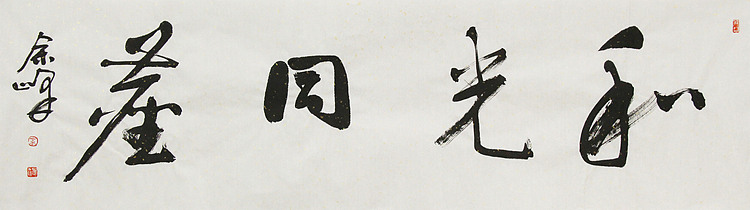 和光同塵
余峰